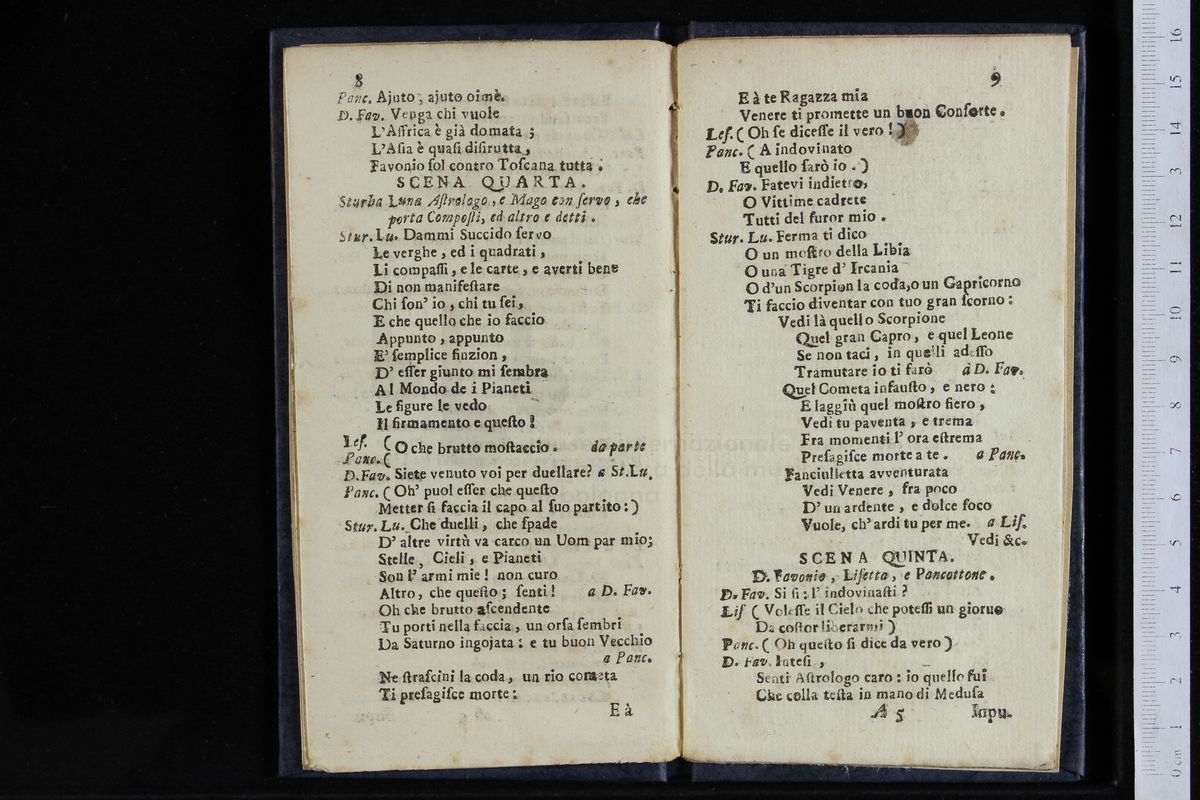 8
Panc. Ajuto, ajuto oimè.
D. Fav. Venga chi vuole
L'Affrica è già domata ;
L'Asia è quasi disirutta,
Favonio sol contro Toscana tutta .
SCENA QUARTA.
Sturba Luna Astrologo, e Mago con servo, che
porta Compossi, ed altro e detti .
Stur. Lu. Dammi Succido servo
Le verghe, ed i quadrati,
Li compassi, e le carte, e averti bene
Di non manifestare
Chi son' io, chi tu sei,
E che quello che io faccio
Appunto, appunto
E' semplice finzion,
D' esser giunto mi sembra
Al Mondo de i Pianeti
Le figure le vedo
Il firmamento e questo!
Les. (
Panc. ( O che brutto mostaccio . da parte
D. Fav. Siete venuto voi per duellare? a St. Lu.
Panc. ( Oh' puol esser che questo
Metter si faccia il capo al suo partito : )
Stur. Lu. Che duelli, che spade
D' altre virtù va carco un Uom par mio;
Stelle, Cieli, e Pianeti
Son l' armi mie! non curo
Altro, che questo ; senti! a D. Fav.
Oh che brutto ascendente
Tu porti nella faccia, un orsa sembri
Da Saturno ingojata : e tu buon Vecchio
a Panc.
Ne strascini la coda, un rio cometa
Ti presagisce morte :
E à
9
E à te Ragazza mia
Venere ti promette un buon Conforte.
Les. ( Oh se dicesse il vero ! )
Panc. ( A indovinato
E quello sarò io . )
D. Fav. Fatevi indietro,
O Vittime cadrete
Tutti del furor mio .
Stur. Lu. Ferma ti dico
O un mostro della Libia
O una Tigre d' Ircania
O d'un Scorpion la coda, o un Gapricorno
Ti faccio diventar con tuo gran scorno :
Vedi là quello Scorpione
Quel gran Capro, e quel Leone
Se non taci, in quelli adesso
Tramutare io ti farò à D. Fav.
Quel Cometa infausto, e nero :
E laggiù quel mostro fiero,
Vedi tu paventa, e trema
Fra momenti l' ora estrema
Presagisce morte a te . a Panc.
Fanciulletta avventurata
Vedi Venere, fra poco
D' un ardente, e dolce foco
Vuole, ch' ardi tu per me. a Lis.
Vedi &c.
SCENA QUINTA.
D. Favonio, Lisetta, e Pancottone.
D. Fav. Si si : l' indovinasti ?
Lis ( Volesse il Cielo che potessi un giorno
Da costor liberarmi )
Panc. ( Oh questo si dice da vero )
D. Fav. Intesi,
Senti Astrologo caro : io quello fui
Che colla testa in mano di Medusa
A 5 Inpu-